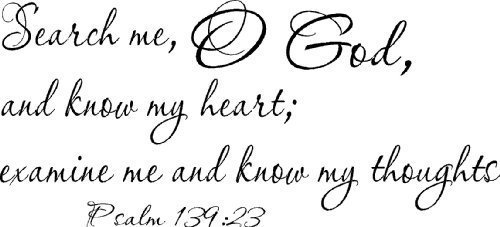 Search me, O God,
and know my heart;
examine me and know my thoughts
Psalm 139:23